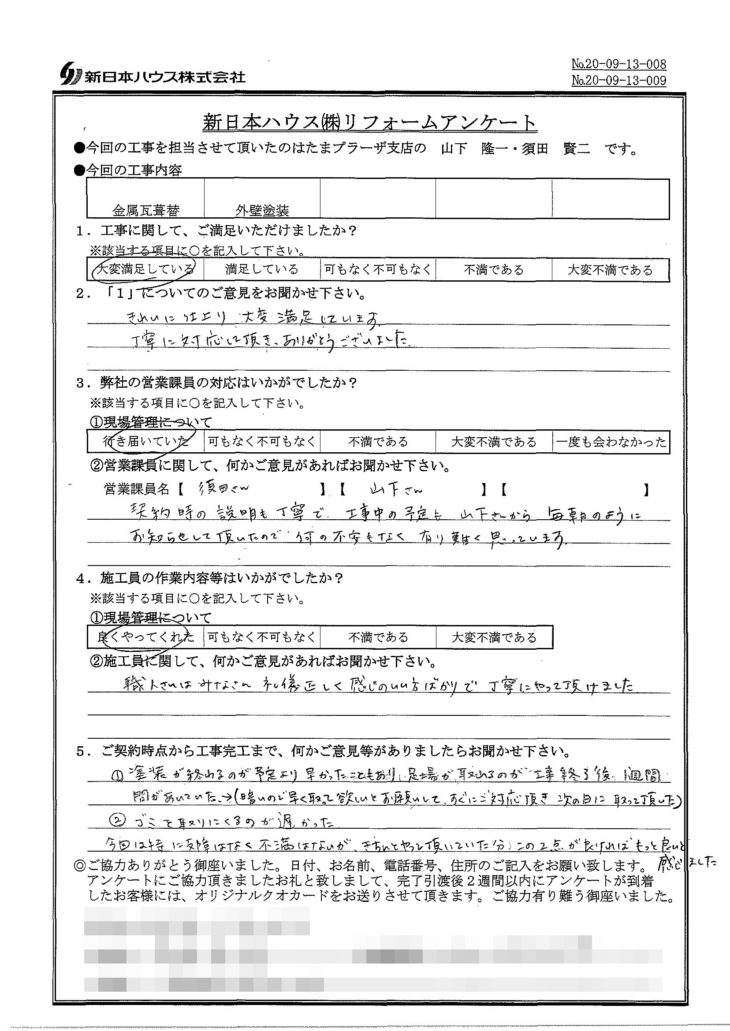 新日本ハウス株式会社
№20-09-13-008
№20-09-13-009
新日本ハウス㈱リフォームアンケート
●今回の工事を担当させて頂いたのはたまプラーザ支店の 山下 隆一・須田 賢二 です。
●今回の工事内容
金属瓦葺替 外壁塗装
1．工事に関して、ご満足いただけましたか？
※該当する項目に○を記入して下さい。
大変満足している 満足している 可もなく不可もなく 不満である 大変不満である
2．「1」についてのご意見をお聞かせ下さい。
きれいに仕上り 大変満足しています
丁寧に対応して頂き、ありがとうございました。
3．弊社の営業課員の対応はいかがでしたか？
※該当する項目に○を記入して下さい。
①現場管理について
行き届いていた 可もなく不可もなく 不満である 大変不満である 一度も会わなかった
②営業課員に関して、何かご意見があればお聞かせ下さい。
営業課員名【 須田さん 】【 山下さん 】【 】
契約時の説明も丁寧で、工事中の予定も 山下さんから 毎朝のように
お知らせして頂いたので 何の不安もなく 有り難く思っています。
4．施工員の作業内容等はいかがでしたか？
※該当する項目に○を記入して下さい。
①現場管理について
良くやってくれた 可もなく不可もなく 不満である 大変不満である
②施工員に関して、何かご意見があればお聞かせ下さい。
職人さんはみなさん 礼儀正しく 感じのいい方ばかりで 丁寧にやって頂けました
5．ご契約時点から工事完工まで、何かご意見等がありましたらお聞かせ下さい。
① 塗装が終わるのが予定より早かったこともあり、足場が取れるのが工事終了後1週間
間があいていた。→(暗いので早く取って欲しいとお願いして、すぐにご対応頂き 次の日に取って頂いた)
② ゴミを取りにくるのが遅かった
今回は特に支障はなく不満はないが、きちんとやって頂いていた分、この2点が良ければもっと良いと
感じました
◎ご協力ありがとう御座いました。日付、お名前、電話番号、住所のご記入をお願い致します。
アンケートにご協力頂きましたお礼と致しまして、完了引渡後2週間以内にアンケートが到着
したお客様には、オリジナルクオカードをお送りさせて頂きます。ご協力有り難う御座いました。